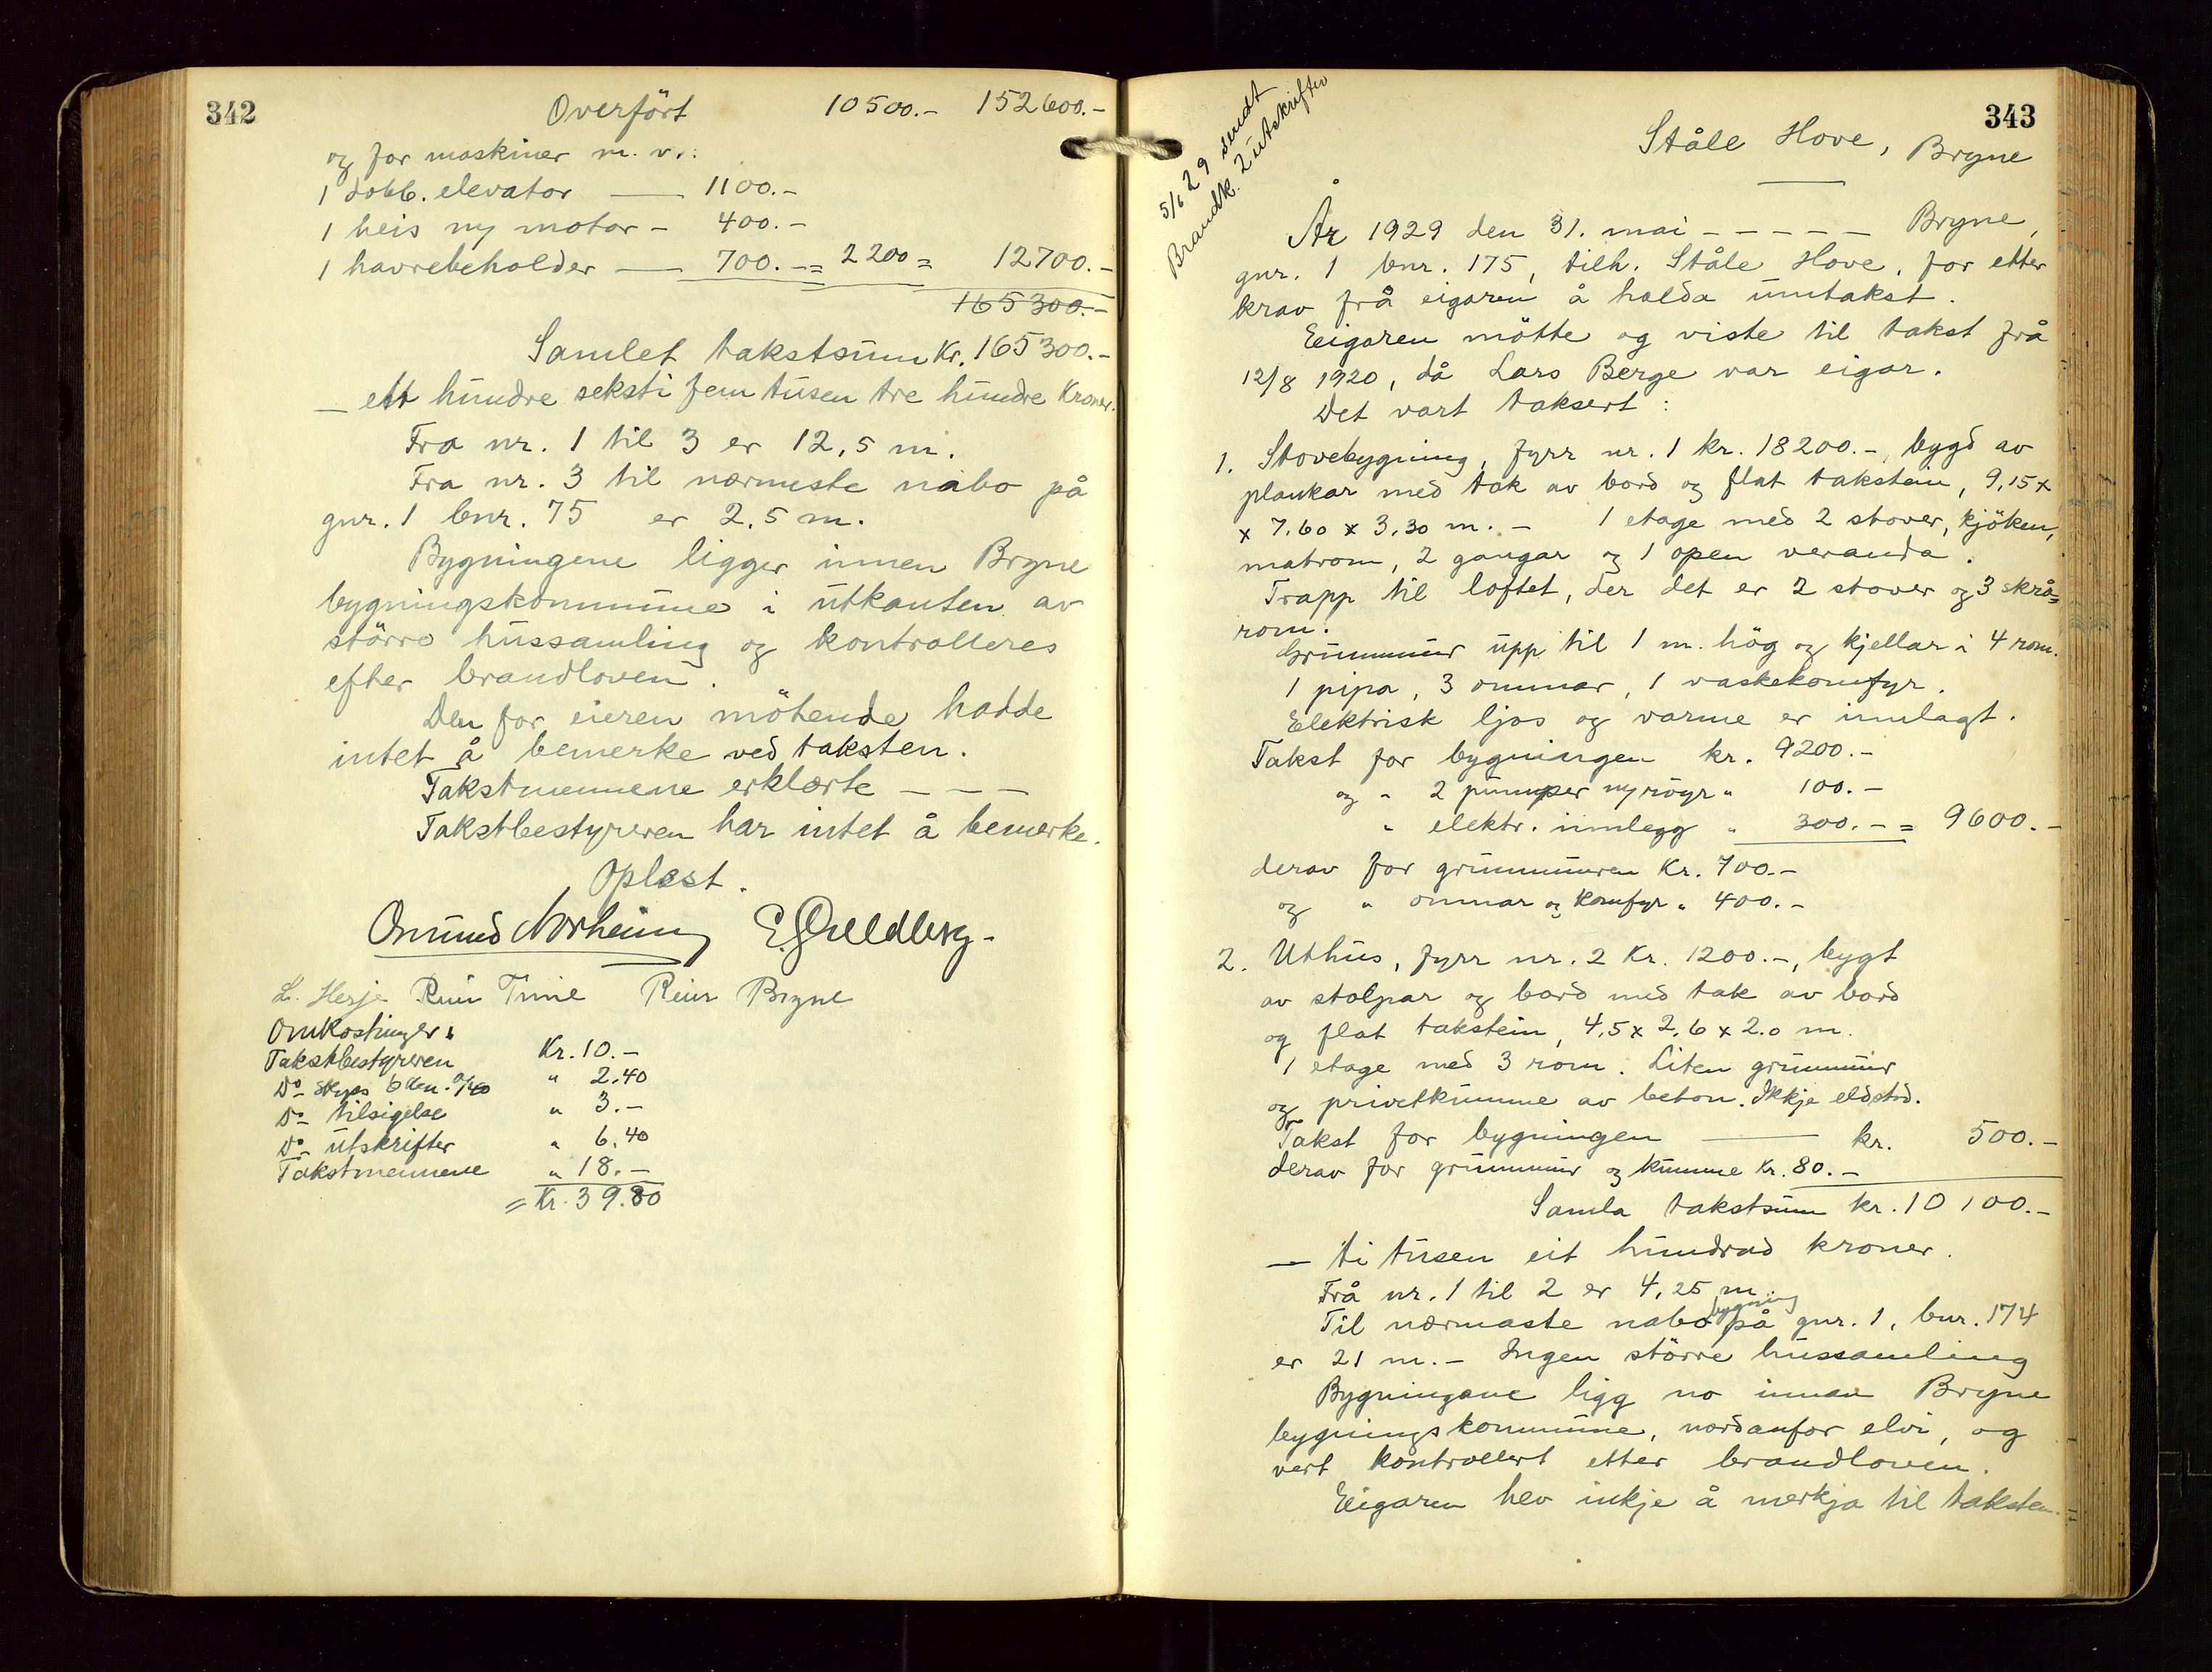 342
Overført 10500.- 152600.-
og for maskiner m. v.:
1 dobb. elevator — 1100.-
1 heis ny motor - 400.-
1 havrebeholder — 700.- = 2200 = 12700.-
165300.-
Samlet takstsum Kr. 165300.-
— ett hundre seksti fem tusen tre hundre Kroner.
Fra nr. 1 til 3 er 12,5 m.
Fra nr. 3 til nærmeste nabo på
gnr. 1 bnr. 75 er 2,5 m.
Bygningene ligger innen Bryne
bygningskommune i utkanten av
större hussamling og kontrolleres
efter brandloven.
Den for eieren mötende hadde
intet å bemerke ved taksten.
Takstmennene erklærte — — —
Takstbestyreren har intet å bemerke.
Oplest.
Omund Norheim E. Guldberg-
L. Herje Reier Bryne
Omkostninger:
Takstbestyreren Kr. 10.-
Do- Skyss 6 km. a/40 " 2.40
Do- tilsigelse " 3.-
Do- utskrifter " 6.40
Takstmennene " 18.-
= Kr. 39.80
5/6 29 sendt
Brandk. 2 utskrifter
343
Ståle Hove, Bryne
År 1929 den 31. mai - - - - - Bryne,
gnr. 1 bnr. 175, tilh. Ståle Hove, for etter
krav frå eigaren å halda umtakst.
Eigaren mötte og viste til takst frå
12/8 1920, då Lars Berge var eigar.
Det vart taksert:
1. Stovebygning, fyrr nr. 1 kr. 18200.-, bygd av
plankar med tak av bord og flat takstein, 9,15 x
x 7,60 x 3,30 m. - 1 etage med 2 stover, kjöken,
matrom, 2 gangar og 1 open veranda.
Trapp til loftet, der det er 2 stover og 3 skrå=
rom.
Grunnmur upp til 1 m. hög og kjellar i 4 rom.
1 pipa, 3 omnar, 1 vaskekomfyr.
Elektrisk ljos og varme er innlagt.
Takst for bygningen kr. 9200.-
og " 2 pumper m/röyr " 100.-
" elektr. innlegg " 300.- = 9600.-
derav for grunnmuren Kr. 700.-
og " omnar og komfyr " 400.-
2. Uthus, fyrr nr. 2 Kr. 1200.-, bygt
av stolpar og bord med tak av bord
og flat takstein, 4,5 x 2,6 x 2.0 m.
1 etage med 3 rom. Liten grunnmur
og privetkumme av beton. Ikkje eldstod.
Takst for bygningen — kr. 500.-
derav for grunnmur og kumme Kr. 80.-
Samla takstsum kr. 10100.-
— ti tusen eit hundrad kroner.
Frå nr. 1 til 2 er 4,25 m.
Til nærmaste nabobygning på gnr. 1, bnr. 174
er 21 m. - Ingen större hussamling
Bygningane ligg no innan Bryne
bygningskommune, nordanfor elvi, og
vert kontrollert etter brandloven.
Eigaren hev inkje å merkja til taksten.